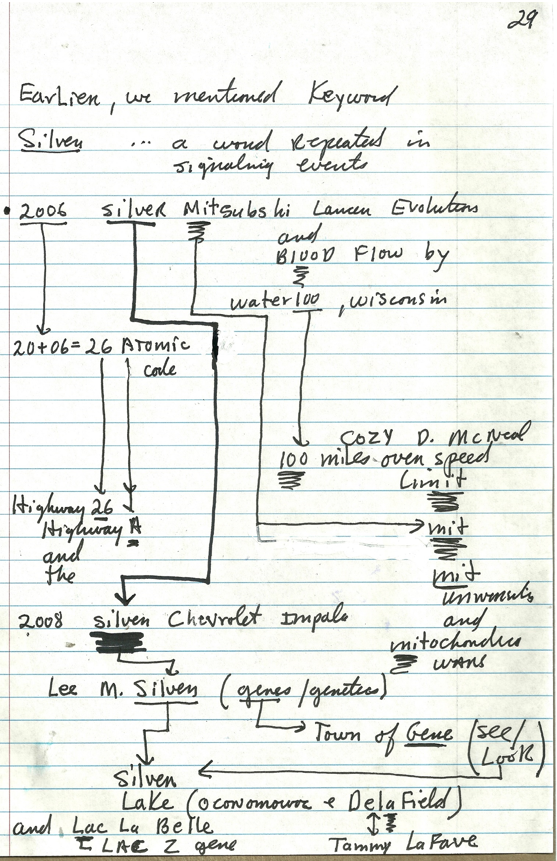 29
Earlier, we mentioned Keyword
Silver ... a word Repeated in
signaling events
• 2006 silver Mitsubshi Lancer Evolution
and
BlOOD Flow by
water100, wisconsin
20+06=26 Atomic
code
COZY D. McNeal
100 miles over speed
Limit
Highway 26
Highway A
mit
and
the
mit
university
2008 silver Chevrolet Impala
and
mitochondria
wars
Lee M. Silver (genes/genetics)
Town of Gene (see/
Look)
Silver
Lake (oconomowoc + DelaField)
and Lac La Belle
LAC Z gene
Tammy LaFave